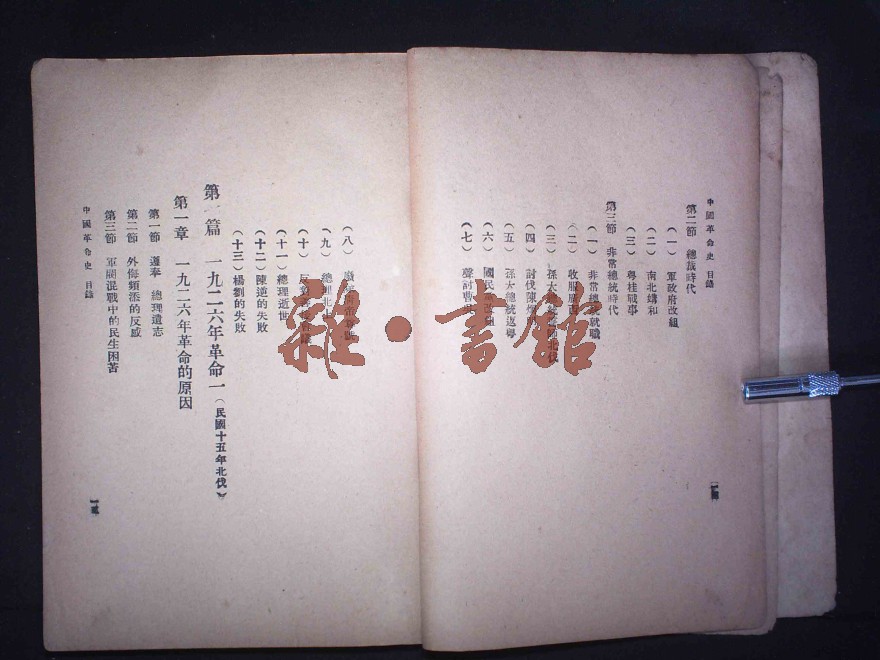 中國革命史 目錄
第二節 總裁時代
(一) 軍政府改組
(二) 南北媾和
(三) 粵桂戰事
第三節 非常總統時代
(一) 非常總統就職
(二) 收服
(三) 孫大總統 北伐
(四) 討伐陳烱
(五) 孫大總統返粵
(六) 國民 改組
(七) 聲討曹
(八)
(九) 總理北
(十)
(十一) 總理逝世
(十二) 陳逆的失敗
(十三) 楊劉的失敗
第 篇 一九二六年革命 (民國十五年北伐)
第一章 一九二六年革命的原因
第一節 遵奉 總理遺志
第二節 外侮頻添的反感
第三節 軍閥混戰中的民生困苦
中國革命史 目錄
雜·書館